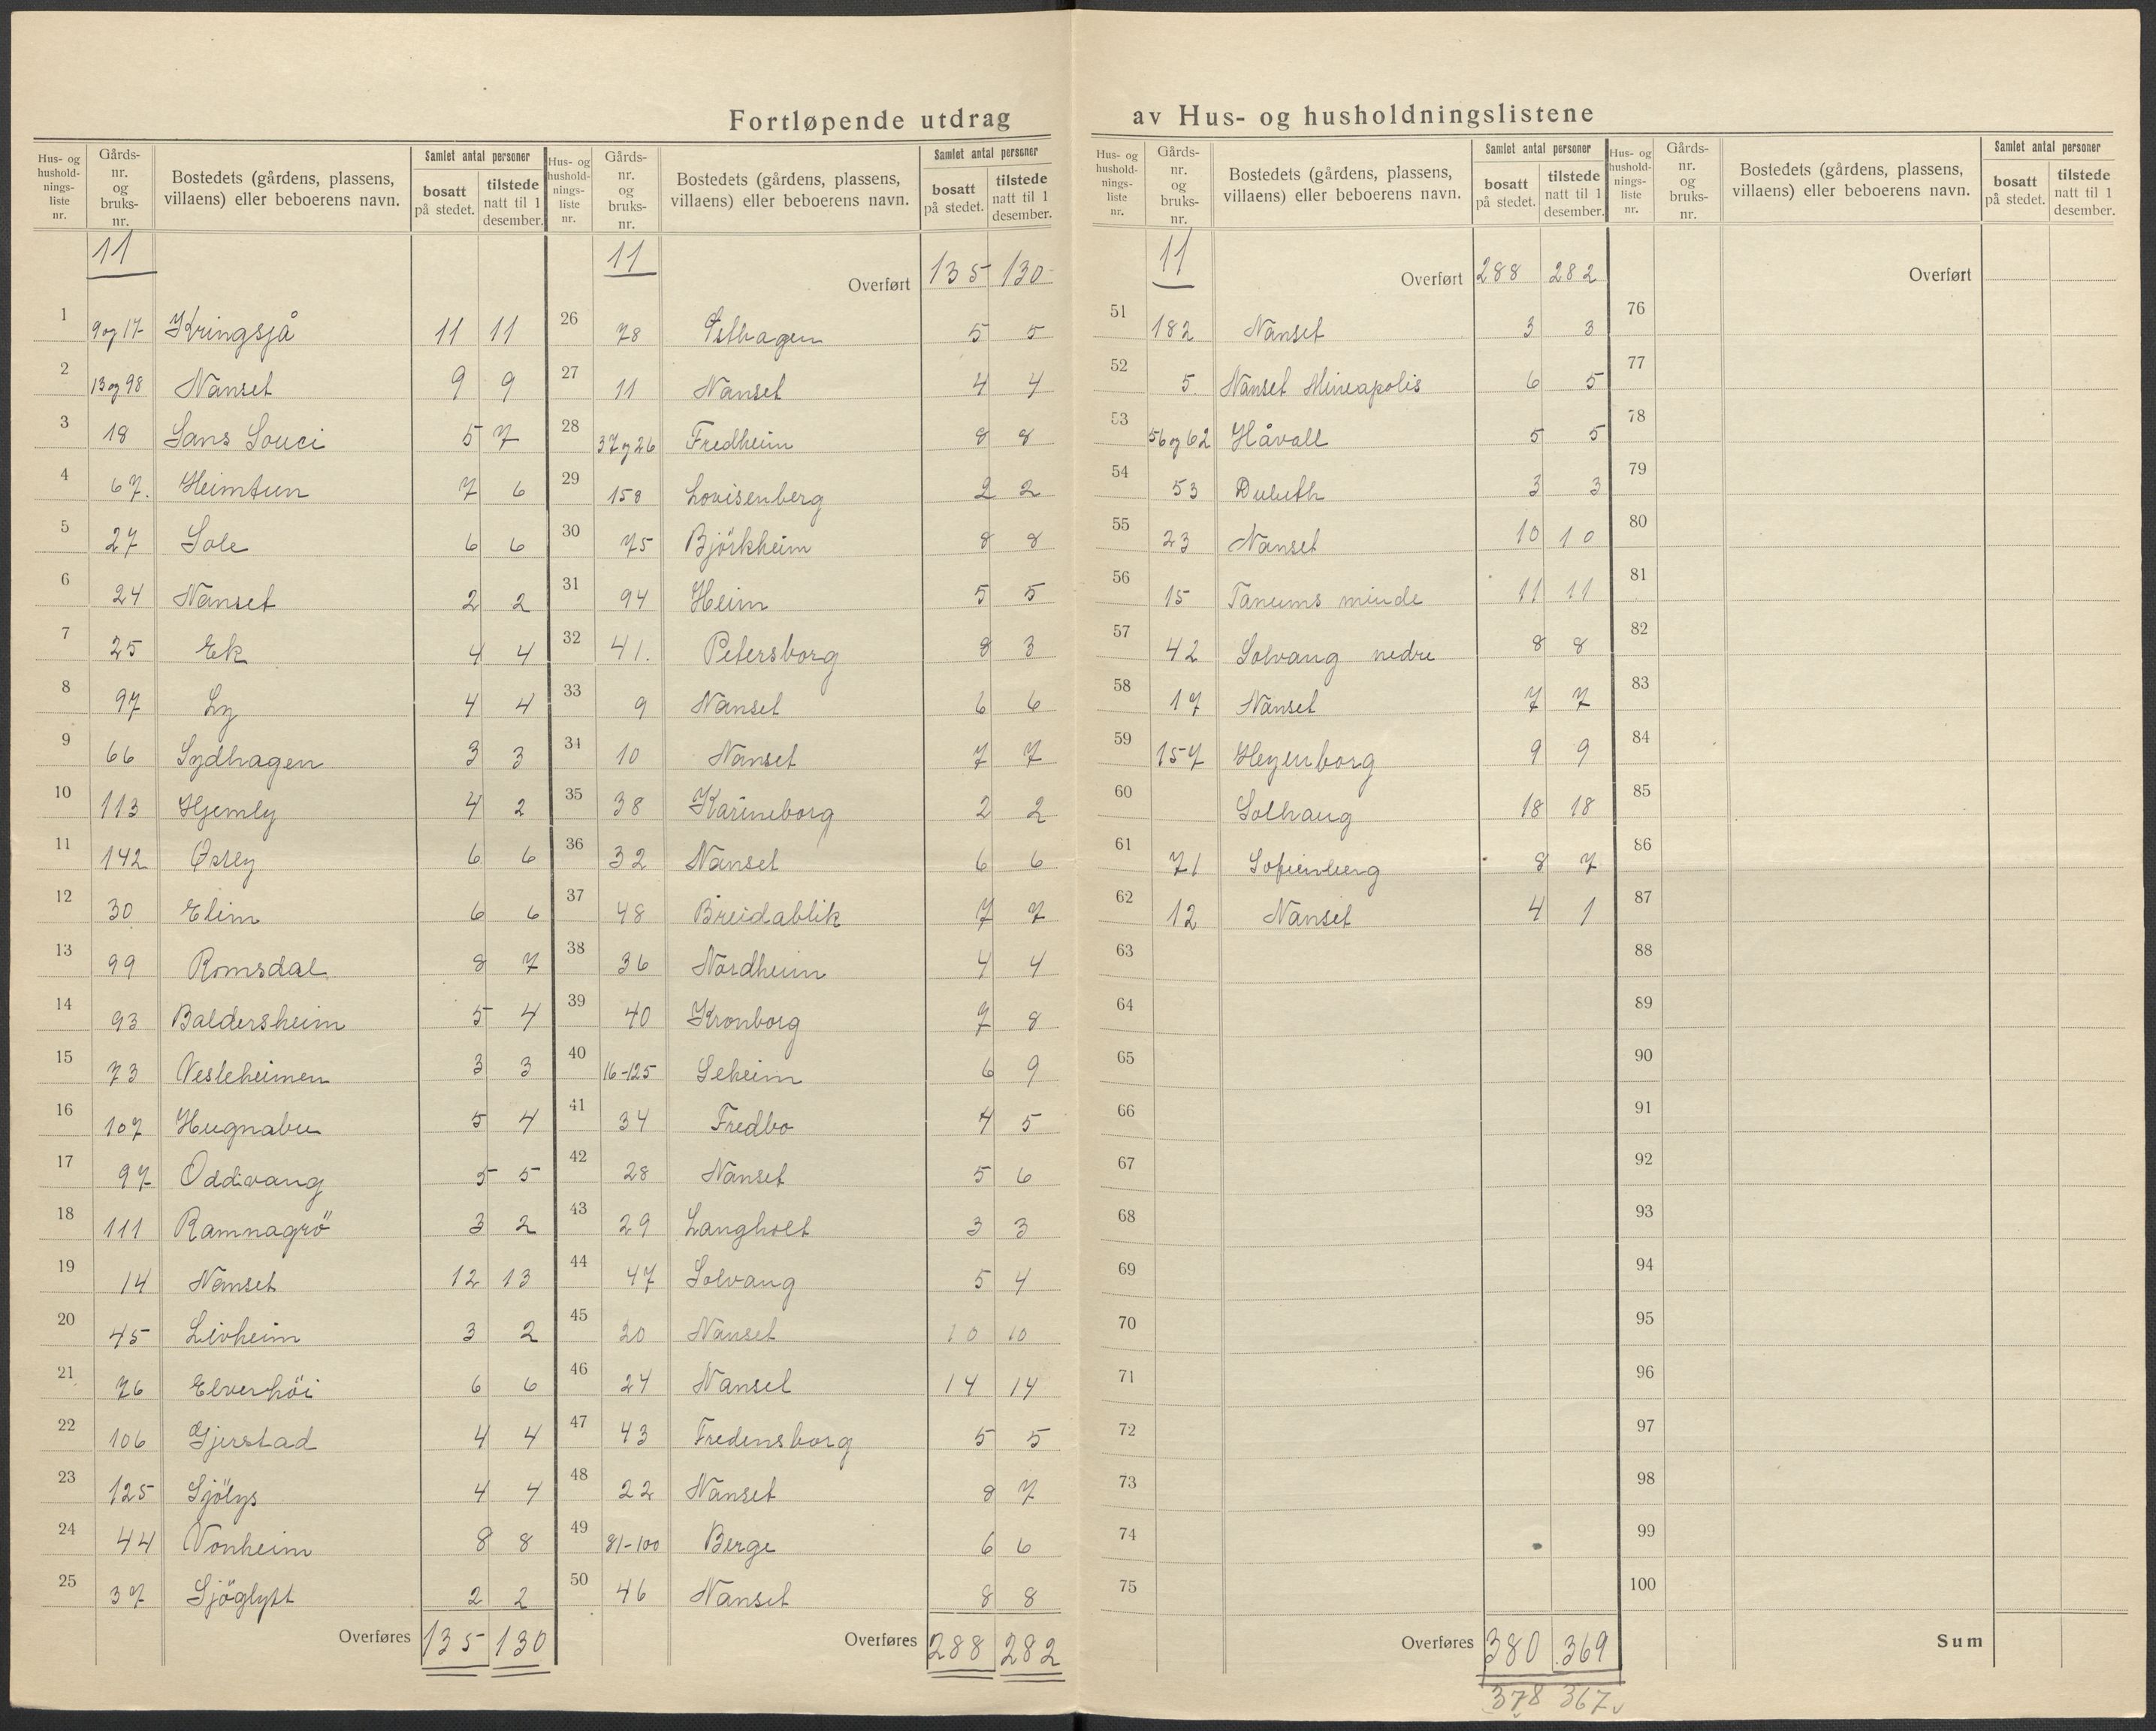 Fortløpende utdrag av Hus- og husholdningslistene
Hus- og hushold-nings-liste nr. | Gårds-nr. og bruks-nr. | Bostedets (gårdens, plassens, villaens) eller beboerens navn. | Samlet antal personer | bosatt på stedet. | tilstede natt til 1 desember.
11
1 9og17 Kringsjå 11 11
2 13og98 Nanset 9 9
3 18 Sans Souci 5 7
4 67. Heimtun 7 6
5 27 Sole 6 6
6 24 Nanset 2 2
7 25 Ek 4 4
8 97 Ly 4 4
9 66 Sydhagen 3 3
10 113 Hjemly 4 2
11 142 6 6
12 30 Elim 6 6
13 99 Romsdal 8 7
14 93 Baldersheim 5 4
15 73 Vesleheimen 3 3
16 107 Hugnabu 5 4
17 97 Oddivang 5 5
18 111 Ramnagrö 3 2
19 14 Nanset 12 13
20 45 Livheim 3 2
21 76 Elverhöi 6 6
22 106 Gjerstad 4 4
23 125 Sjölys 4 4
24 44 Vonheim 8 8
25 37 Sjöglytt 2 2
Overføres 135 130
Hus- og hushold-nings-liste nr. | Gårds-nr. og bruks-nr. | Bostedets (gårdens, plassens, villaens) eller beboerens navn. | Samlet antal personer | bosatt på stedet. | tilstede natt til 1 desember.
11 Overført 135 130
26 78 5 5
27 11 Nanset 4 4
28 37og26 Fredheim 8 8
29 158 Lovisenberg 2 2
30 75 Björkheim 8 8
31 94 Heim 5 5
32 41. Petersborg 8 3
33 9 Nanset 6 6
34 10 Nanset 7 7
35 38 Karineborg 2 2
36 32 Nanset 6 6
37 48 Breidablik 7 7
38 36 Nordheim 4 4
39 40 Kronborg 7 8
40 16-125 Seheim 6 9
41 34 Fredbo 4 5
42 28 Nanset 5 6
43 29 Langholt 3 3
44 47 Solvang 5 4
45 20 Nanset 10 10
46 24 Nanset 14 14
47 43 Fredensborg 5 5
48 22 Nanset 8 7
49 81-100 Berge 6 6
50 46 Nanset 8 8
Overføres 288 282
Hus- og hushold-nings-liste nr. | Gårds-nr. og bruks-nr. | Bostedets (gårdens, plassens, villaens) eller beboerens navn. | Samlet antal personer | bosatt på stedet. | tilstede natt til 1 desember.
11 Overført 288 282
51 182 Nanset 3 3
52 5. Nanset Mineapolis 6 5
53 56og62 Håvall 5 5
54 53 Duluth 3 3
55 23 Nanset 10 10
56 15 Tanums minde 11 11
57 42 Solvang nedre 8 8
58 17 Nanset 7 7
59 157 Heyenborg 9 9
60 Solhaug 18 18
61 71 Sofienberg 8 7
62 12 Nanset 4 1
63
64
65
66
67
68
69
70
71
72
73
74
75
Overføres 380 369
378 367
Hus- og hushold-nings-liste nr. | Gårds-nr. og bruks-nr. | Bostedets (gårdens, plassens, villaens) eller beboerens navn. | Samlet antal personer | bosatt på stedet. | tilstede natt til 1 desember.
Overført
76
77
78
79
80
81
82
83
84
85
86
87
88
89
90
91
92
93
94
95
96
97
98
99
100
Sum